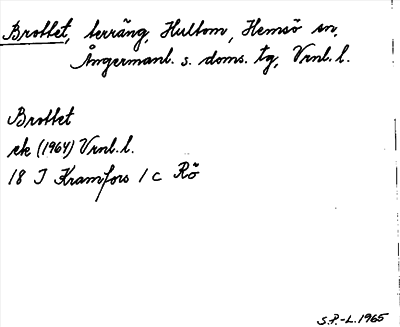 Brottet, terräng, Hultom, Hemsö sn,
Ångermanl. s. doms. tg, Vrnl. l.
Brottet
ek (1964) Vrnl. l.
18 I Kramfors 1 c Rö
S.P.-L. 1965